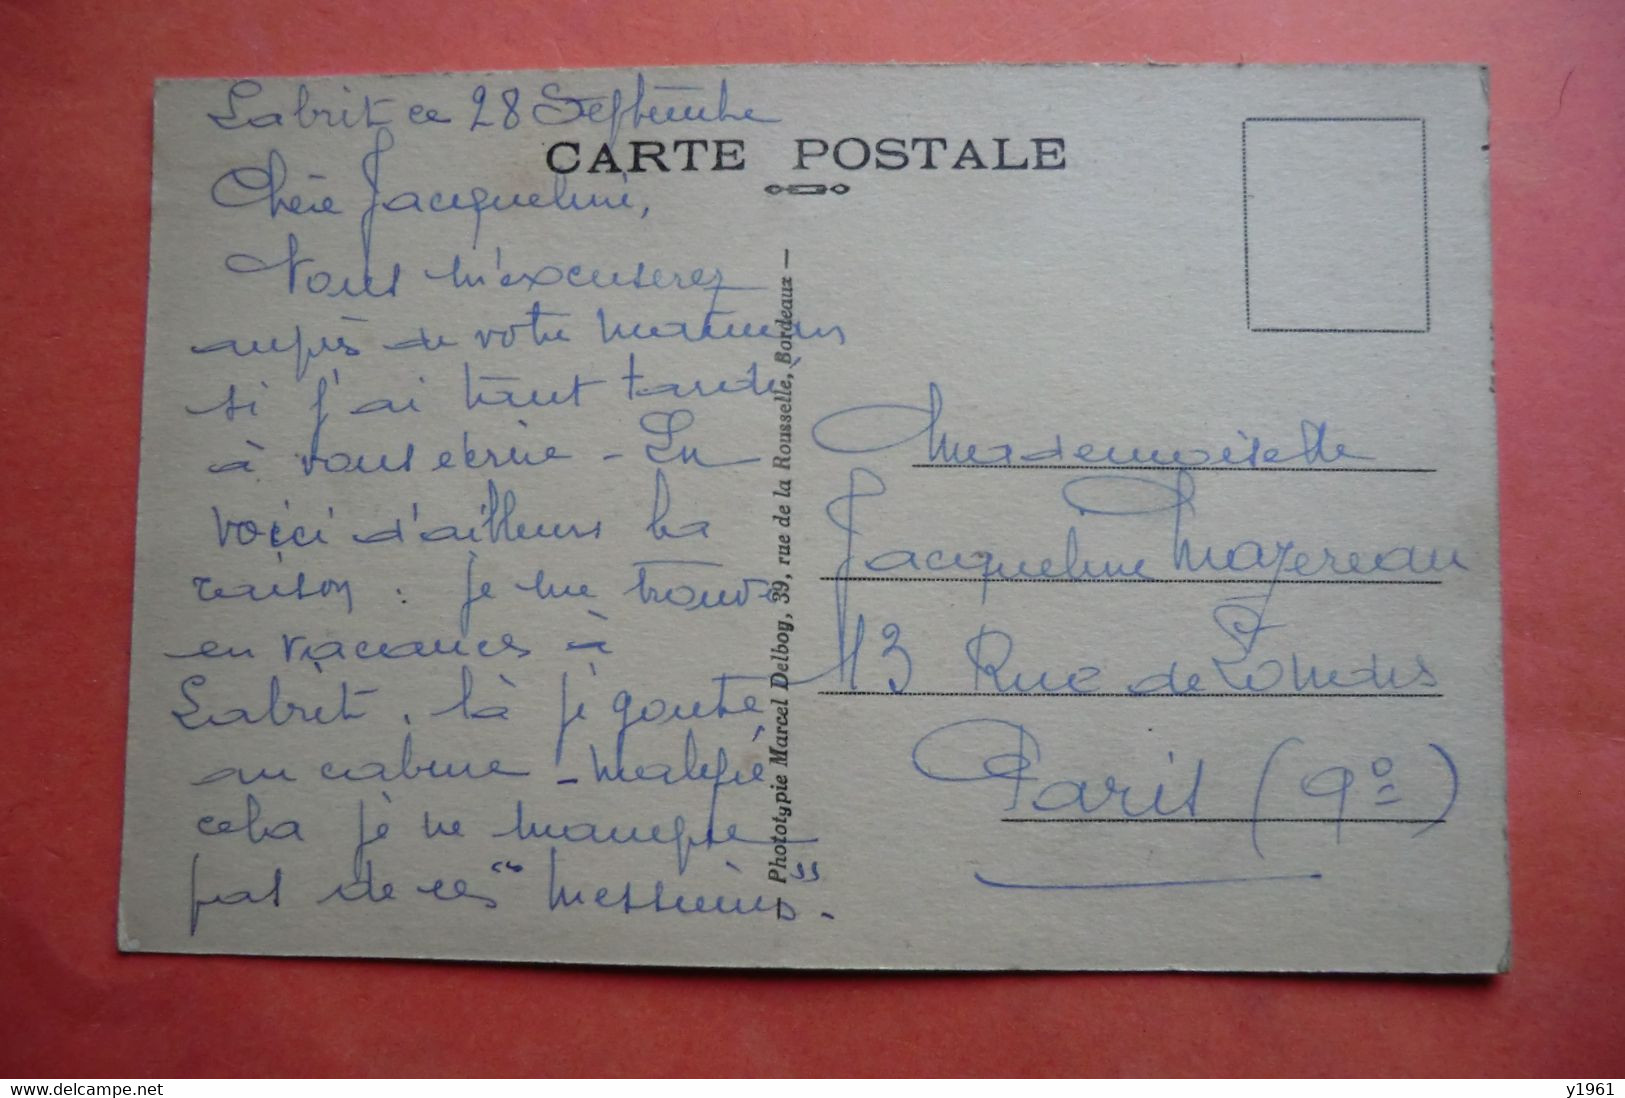 Labrit ce 28 Septembre
CARTE POSTALE
Chère Jacqueline,
Vous m'excuserez
auprès de votre maman
si j'ai tant tardé
à vous écrire - En
voici d'ailleurs la
raison : je me trouve
en vacances à
Labrit, là je goûte
au calme - Malgré
cela je ne manque
pas de ces "messieurs".
— Phototypie Marcel Delboy, 39, rue de la Rousselle, Bordeaux —
Mademoiselle
Jacqueline Mazereau
13 Rue de Londres
Paris (9º)
delcampe.net
y1961